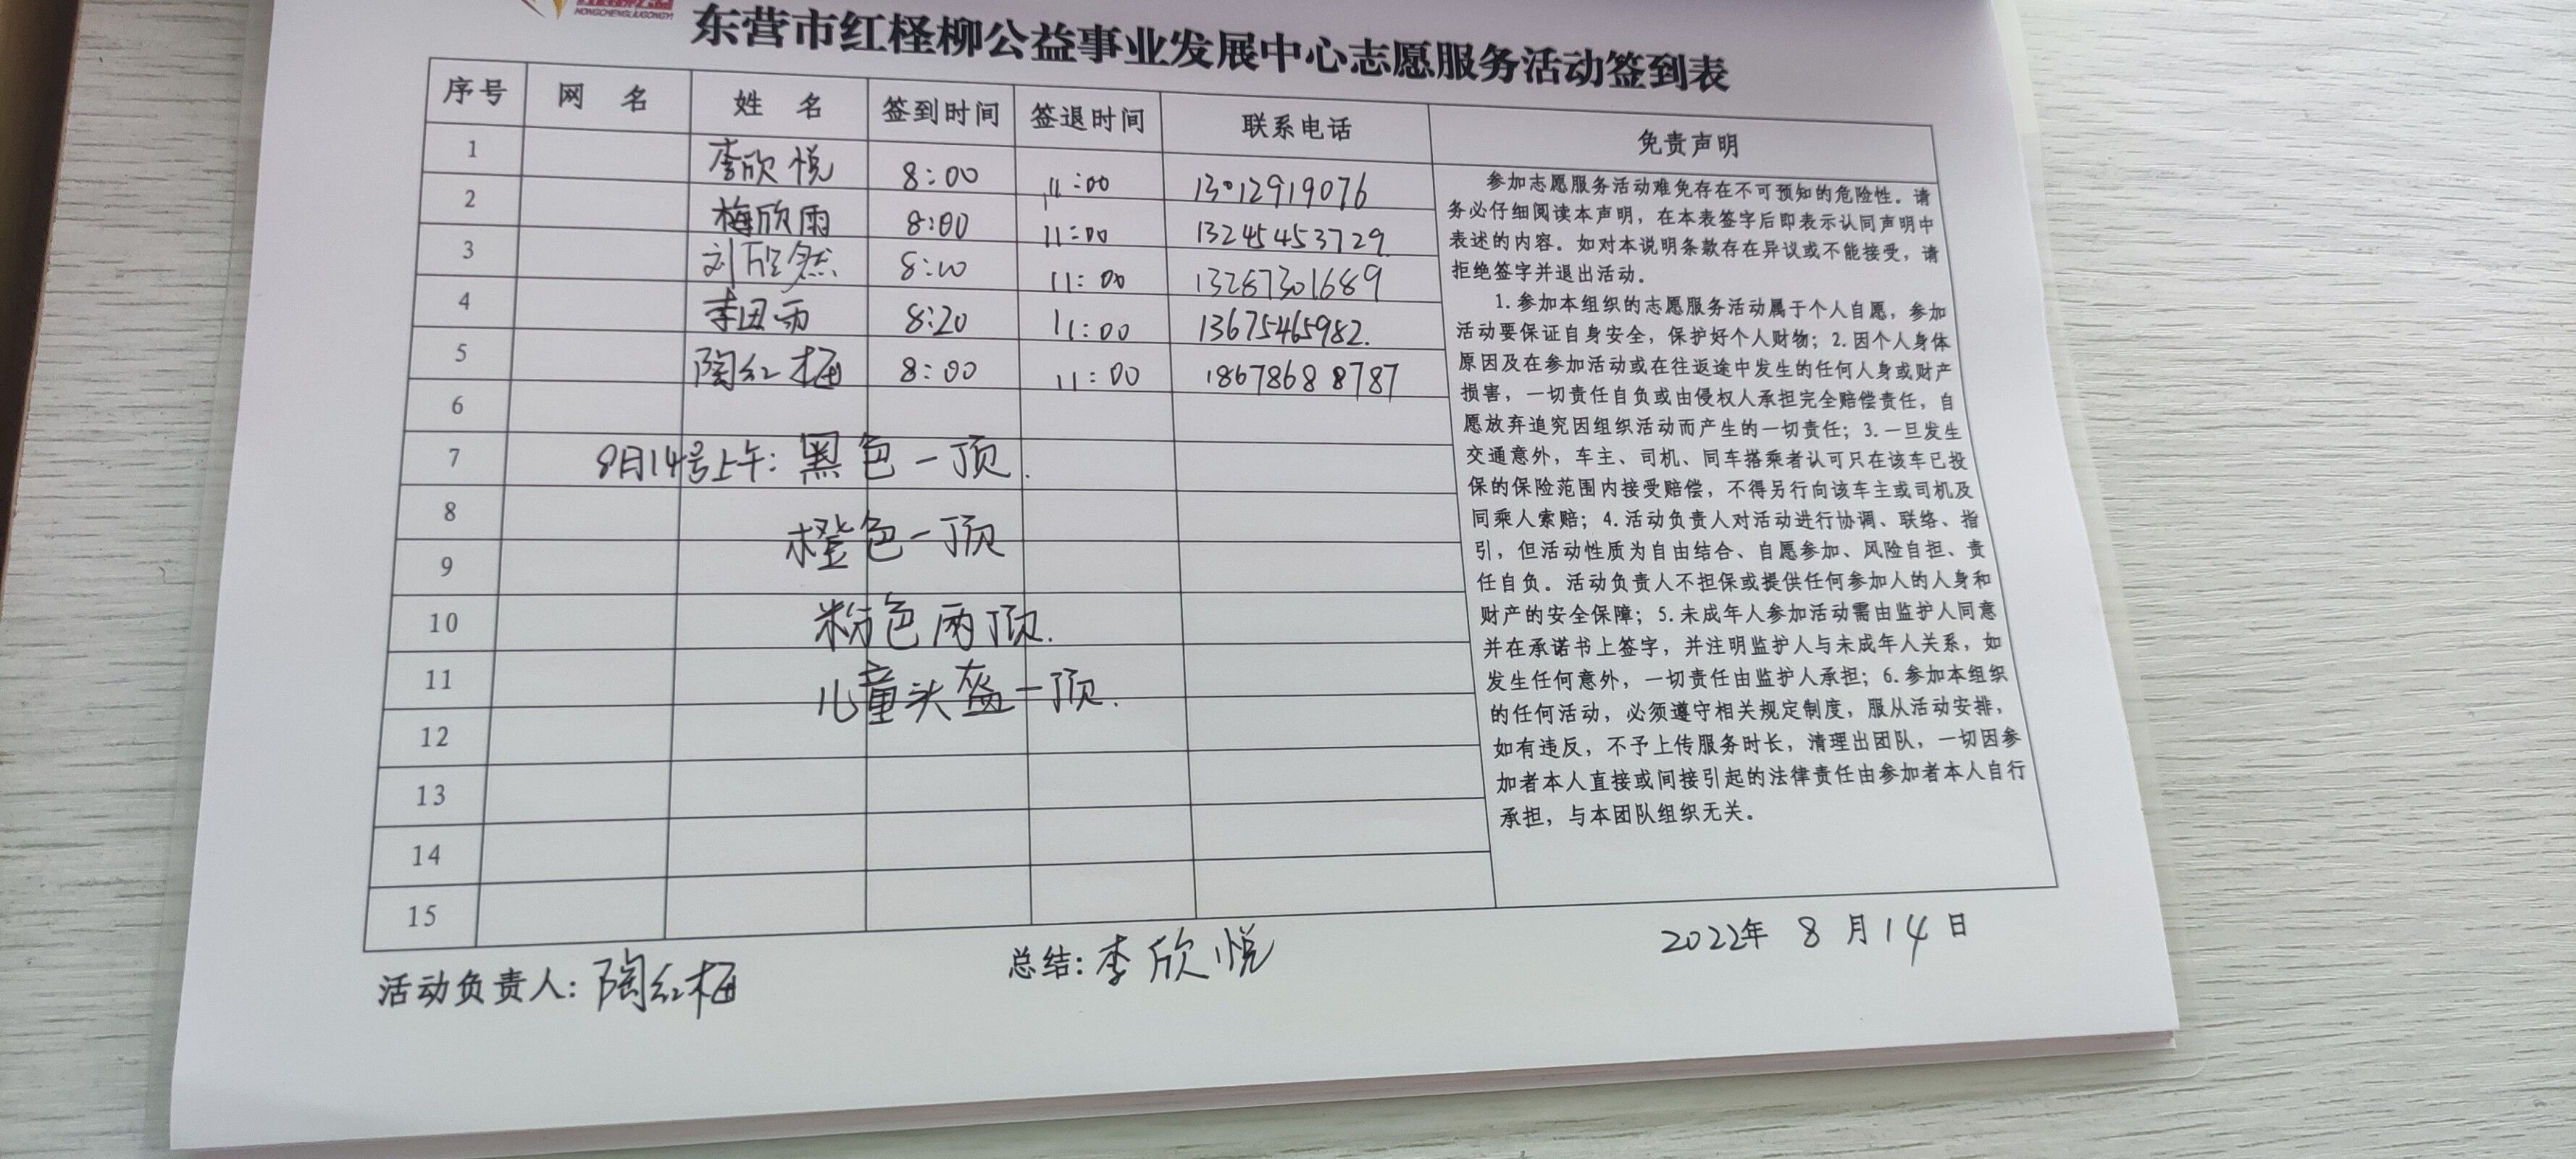 HONGCHENGLIUGONGYI
东营市红柽柳公益事业发展中心志愿服务活动签到表
序号 网 名 姓 名 签到时间 签退时间 联系电话 免责声明
1 李欣悦 8:00 11:00 13012919076
2 梅欣雨 8:00 11:00 13245453729
3 刘欣然 8:10 11:00 13287301689
4 李田雨 8:20 11:00 13675465982.
5 陶红梅 8:00 11:00 18678688787
6
7 8月14号上午: 黑色一顶.
8 橙色一顶
9
10 粉色两顶.
11 儿童头盔一顶.
12
13
14
15
参加志愿服务活动难免存在不可预知的危险性。请
务必仔细阅读本声明，在本表签字后即表示认同声明中
表述的内容。如对本说明条款存在异议或不能接受，请
拒绝签字并退出活动。
1.参加本组织的志愿服务活动属于个人自愿，参加
活动要保证自身安全，保护好个人财物；2.因个人身体
原因及在参加活动或在往返途中发生的任何人身或财产
损害，一切责任自负或由侵权人承担完全赔偿责任，自
愿放弃追究因组织活动而产生的一切责任；3.一旦发生
交通意外，车主、司机、同车搭乘者认可只在该车已投
保的保险范围内接受赔偿，不得另行向该车主或司机及
同乘人索赔；4.活动负责人对活动进行协调、联络、指
引，但活动性质为自由结合、自愿参加、风险自担、责
任自负。活动负责人不担保或提供任何参加人的人身和
财产的安全保障；5.未成年人参加活动需由监护人同意
并在承诺书上签字，并注明监护人与未成年人关系，如
发生任何意外，一切责任由监护人承担；6.参加本组织
的任何活动，必须遵守相关规定制度，服从活动安排，
如有违反，不予上传服务时长，清理出团队，一切因参
加者本人直接或间接引起的法律责任由参加者本人自行
承担，与本团队组织无关。
活动负责人: 陶红梅 总结: 李欣悦 2022年 8 月 14 日